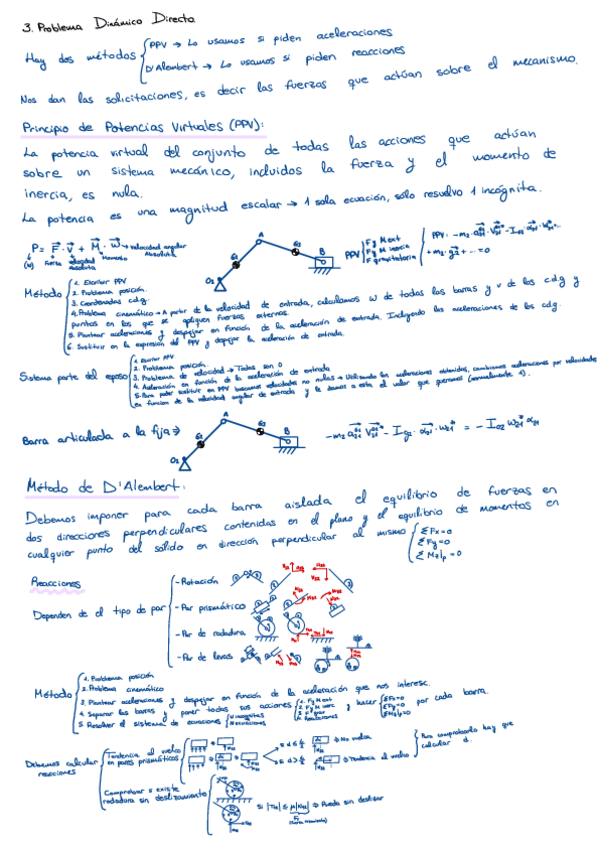 3. Problema Dinámico Directo
Hay dos métodos
PPV → Lo usamos si piden aceleraciones
D'Alembert → Lo usamos si piden reacciones
Nos dan las solicitaciones, es decir las fuerzas que actúan sobre el mecanismo.
Principio de Potencias Virtuales (PPV):
La potencia virtual del conjunto de todas las acciones que actúan
sobre un sistema mecánico, incluidos la fuerza y el momento de
inercia, es nula.
La potencia es una magnitud escalar → 1 sola ecuación, solo resuelvo 1 incógnita.
P = F · v + M · w → velocidad angular
Absoluta
(W) Fuerza velocidad Momento
absoluta
A
G2
G3
B
O2
PPV
F y M ext
F y M inercia
F gravitatoria
Método
1. Escribir PPV
2. Problema posición.
3. Coordenadas c.d.g.
4. Problema cinemático → A partir de la velocidad de entrada, calculamos w de todas las barras y v de los c.d.g y
puntos en los que se apliquen fuerzas externas.
5. Plantear aceleraciones y despejar en función de la aceleración de entrada. Incluyendo las aceleraciones de los c.d.g.
6. Sustituir en la expresión del PPV y despejar la aceleración de entrada.
Sistema parte del reposo
1. Escribir PPV
2. Problema posición.
3. Problema de velocidad → Todas son 0
4. Aceleración en función de la aceleración de entrada
5. Para poder sustituir en PPV buscamos velocidades no nulas → Utilizando las aceleraciones obtenidas, cambiamos aceleraciones por velocidades
en función de la velocidad angular de entrada y le damos a esta el valor que queramos (normalmente 1).
Barra articulada a la fija ⇒
A
G2
G3
B
O2
Método de D'Alembert:
Debemos imponer para cada barra aislada el equilibrio de fuerzas en
dos direcciones perpendiculares contenidas en el plano y el equilibrio de momentos en
cualquier punto del sólido en dirección perpendicular al mismo
ΣFx=0
ΣFy=0
ΣMz|p=0
Reacciones
Dependen de el tipo de par
- Rotación
- Par prismático
- Par de rodadura
- Par de levas
Método
1. Problema posición
2. Problema cinemático
3. Plantear aceleraciones y despejar en función de la aceleración que nos interesc.
4. Separar las barras y poner todas sus acciones
1. F y M ext
4. Reacciones
y hacer
ΣFx=0
ΣFy=0
ΣMz|p=0
por cada barra.
5. Resolver el sistema de ecuaciones
Debemos calcular
reacciones
Tendencia al vuelco
en pares prismáticos
No vuelca
Tendencia al vuelco
Para comprobarlo hay que
calcular d.
Comprobar si existe
rodadura sin deslizamiento
⇒ Rueda sin deslizar